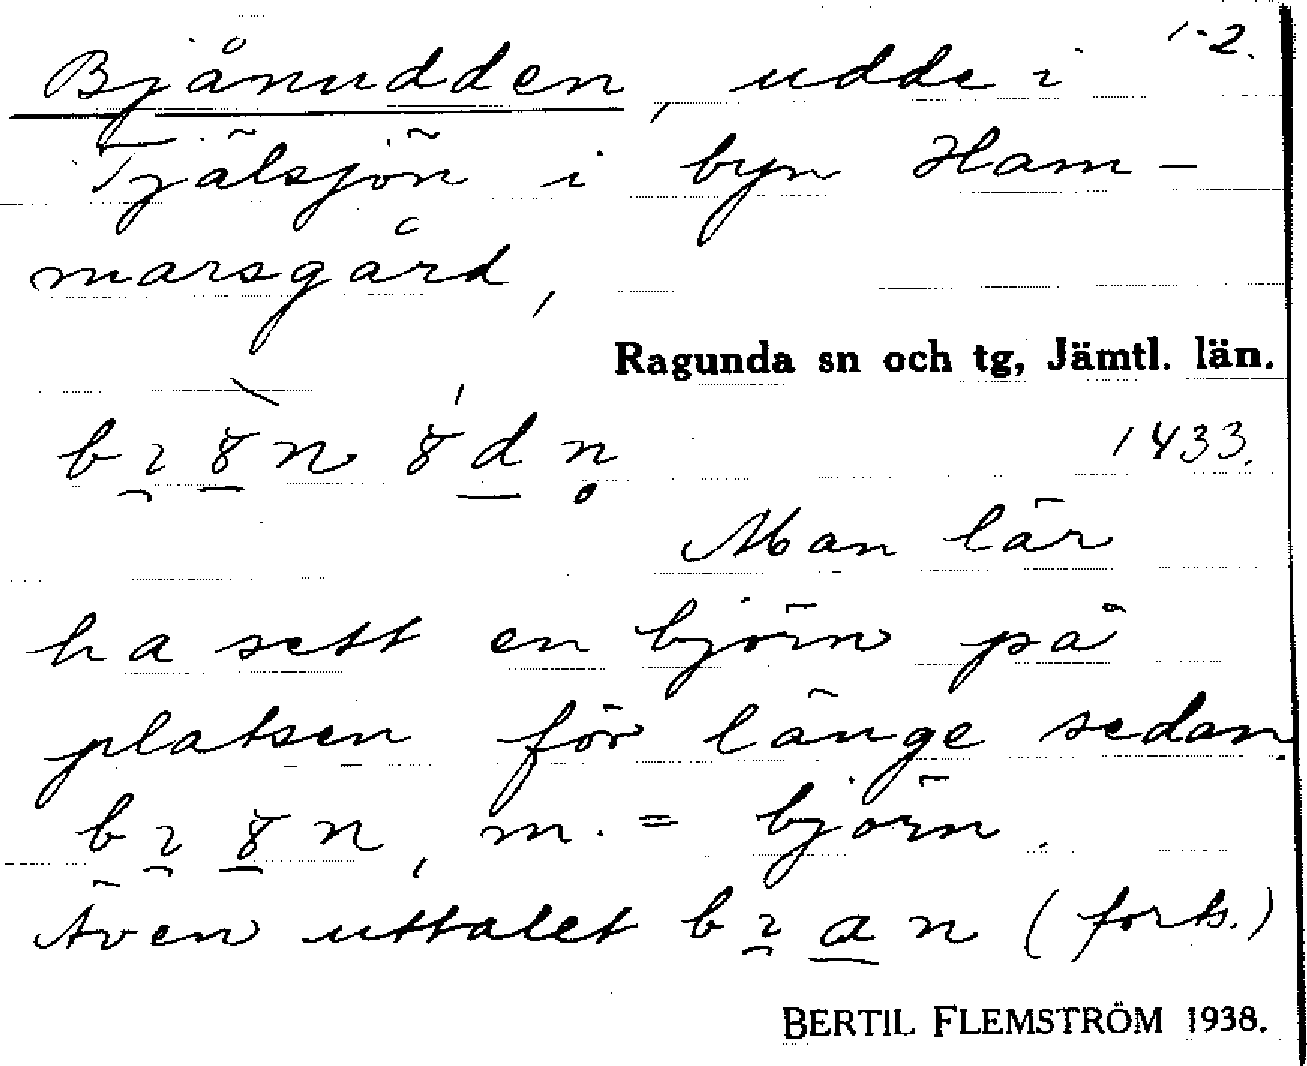 1-2.
Bjånudden, udde i
Tjälsjön i byn Ham-
marsgård,
Ragunda sn och tg, Jämtl. län.
1433.
Man lär
ha sett en björn på
platsen för länge sedan.
m. = björn.
Även uttalet (forts.)
BERTIL FLEMSTRÖM 1938.